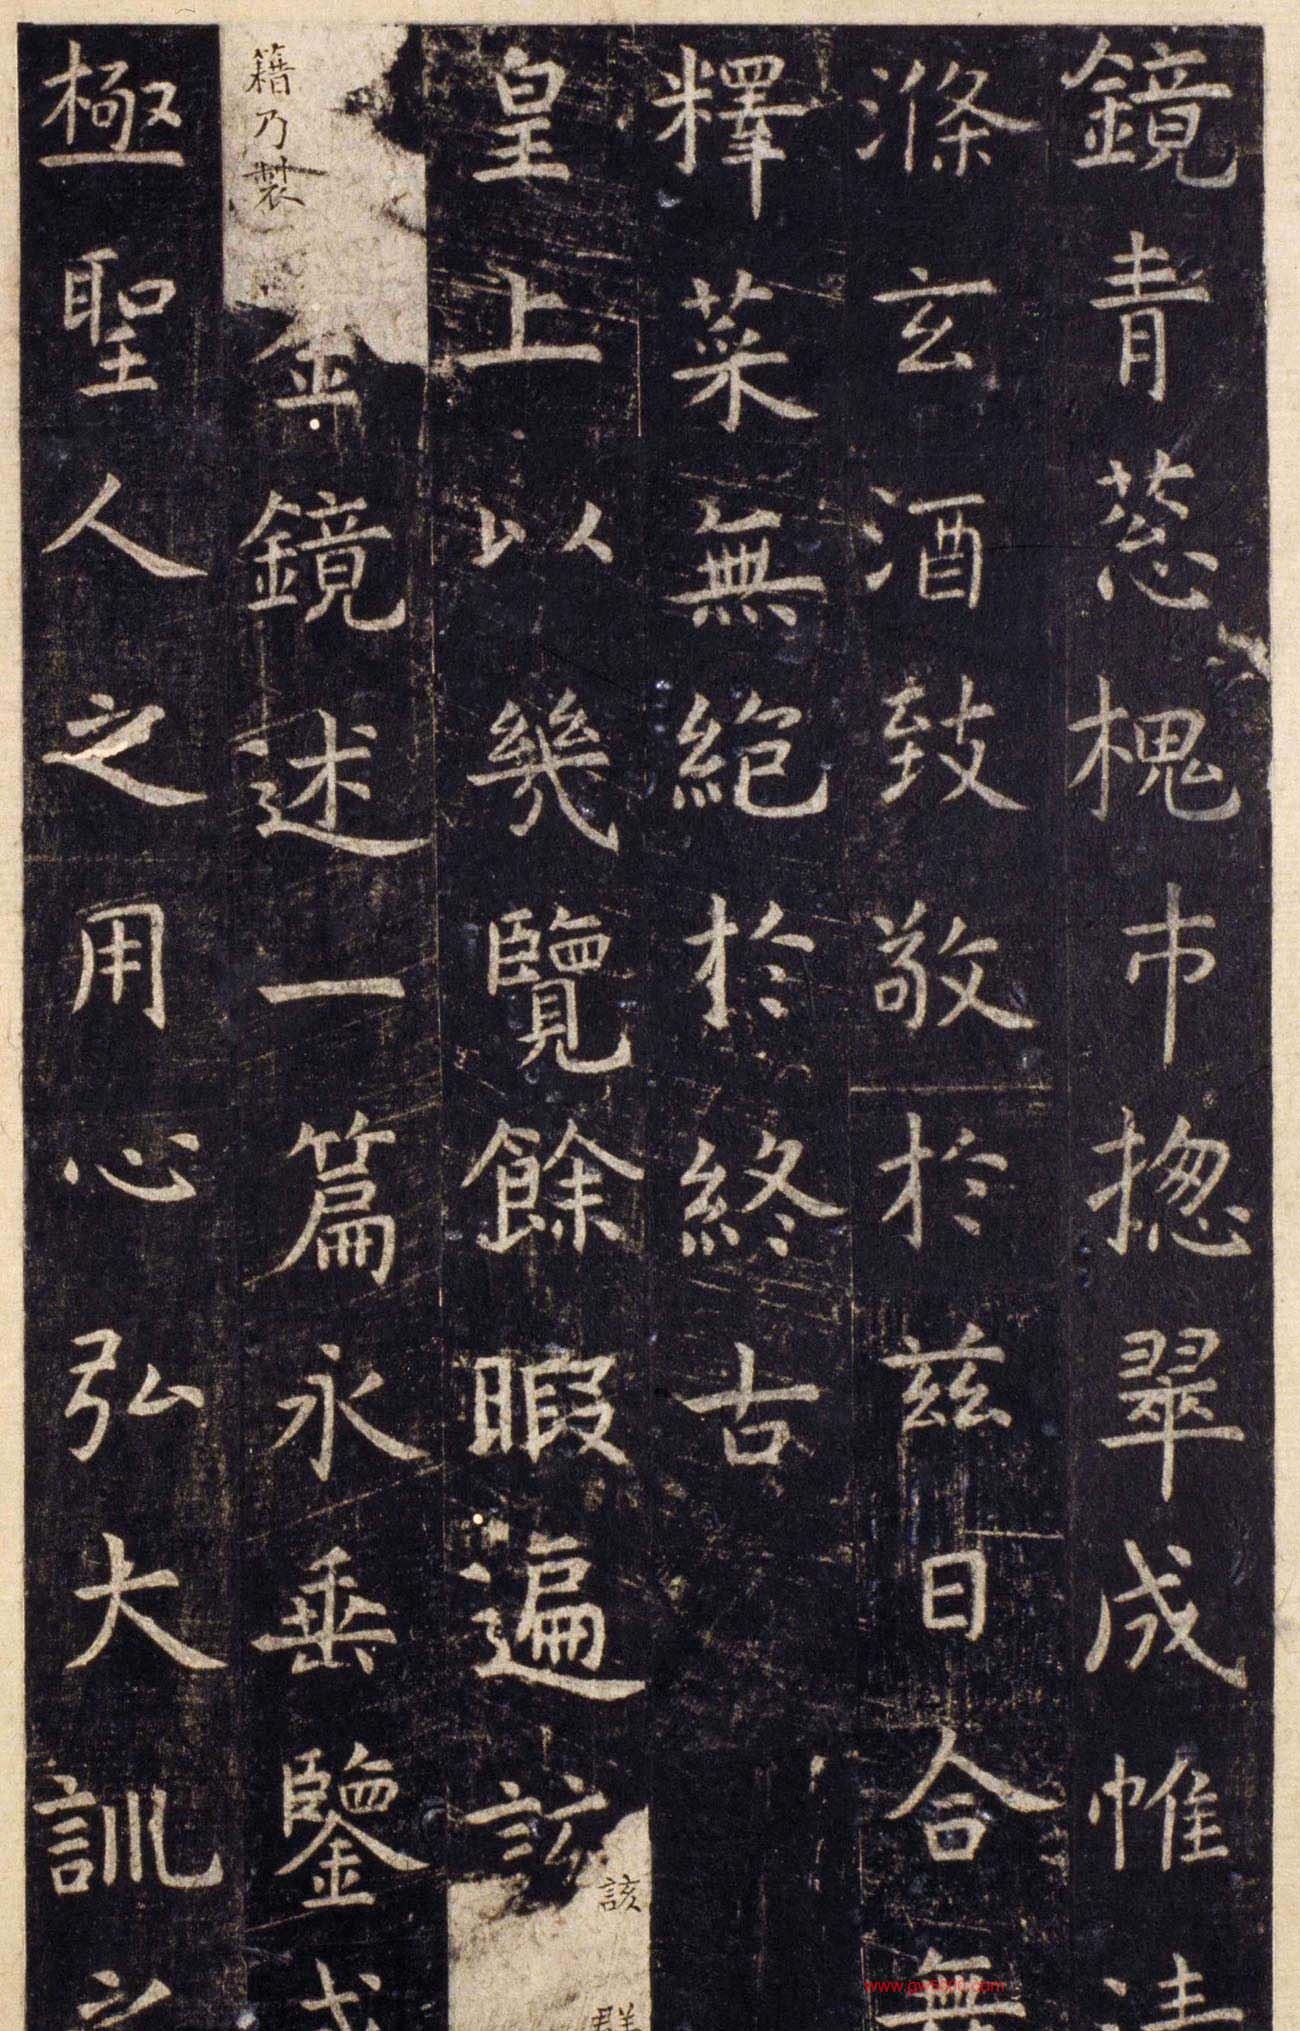 鏡青葱槐市揔翠成帷清
滌玄酒致敬於茲日合無
釋菜無絕於終古
皇上以幾覽餘暇遍該
該群
籍乃製
金鏡述一篇永垂鑒戒
極聖人之用心弘大訓之
www.gw5000.com